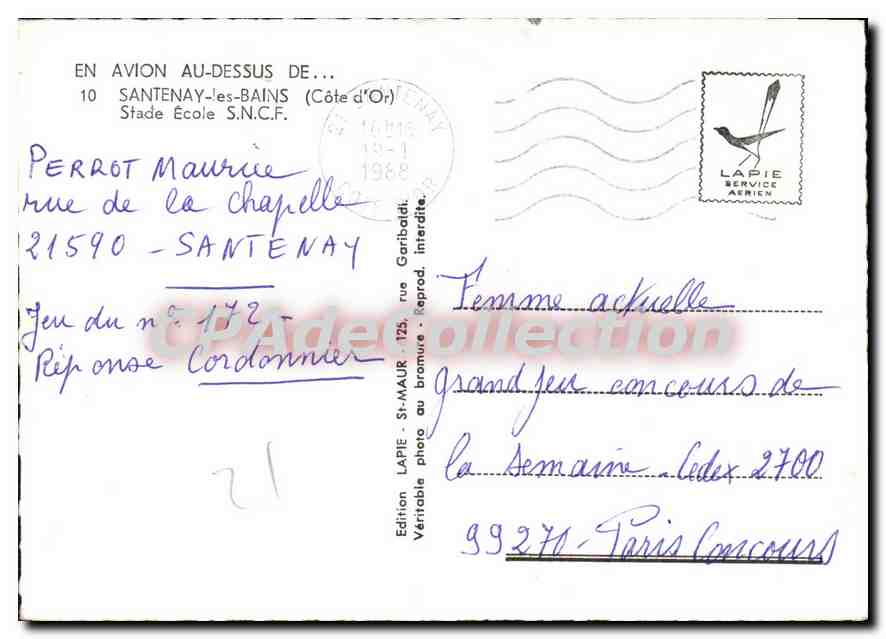 EN AVION AU-DESSUS DE...
10 SANTENAY-les-BAINS (Côte d'Or)
Stade École S.N.C.F.
SANTENAY
1988
LAPIE
SERVICE
AERIEN
PERROT Maurice
rue de la chapelle
21590 - SANTENAY
Jeu du n° 172 -
Réponse Cordonnier
21
Edition LAPIE - St-MAUR - 125, rue Garibaldi.
Véritable photo au bromure - Reprod. interdite.
Femme actuelle
grand Jeu concours de
la semaine - Cedex 2700
99270 - Paris Concours
CPAdeCollection